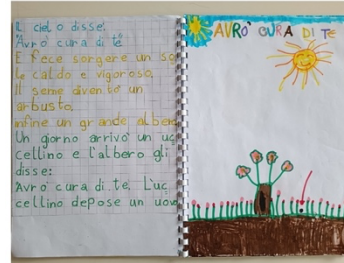 Il cielo disse:
Avrò cura di te
E fece sorgere un so
le caldo e vigoroso.
Il seme diventò un
arbusto,
infine un grande albero
Un giorno arrivò un uc
cellino e l'albero gli
disse:
Avrò cura di te. L'uc
cellino depose un uovo
AVRO' CURA DI TE